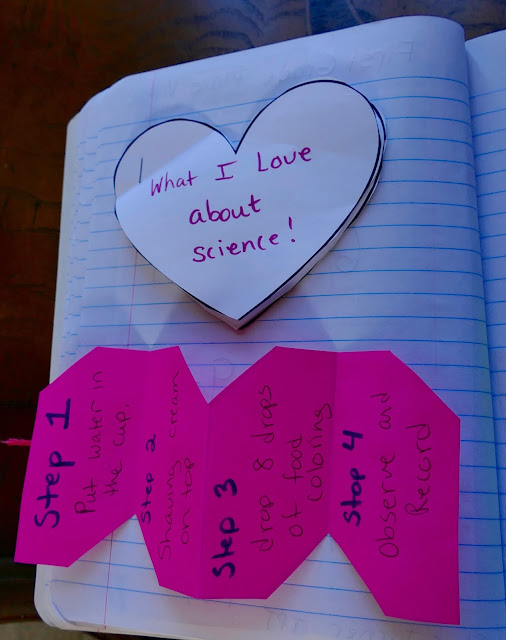 What I Love
about
science!
Step 1
Put water in
the cup.
Step 2
Shaving cream
on top
Step 3
drop 8 drops
of food
coloring
Stop 4
Observe and
Record